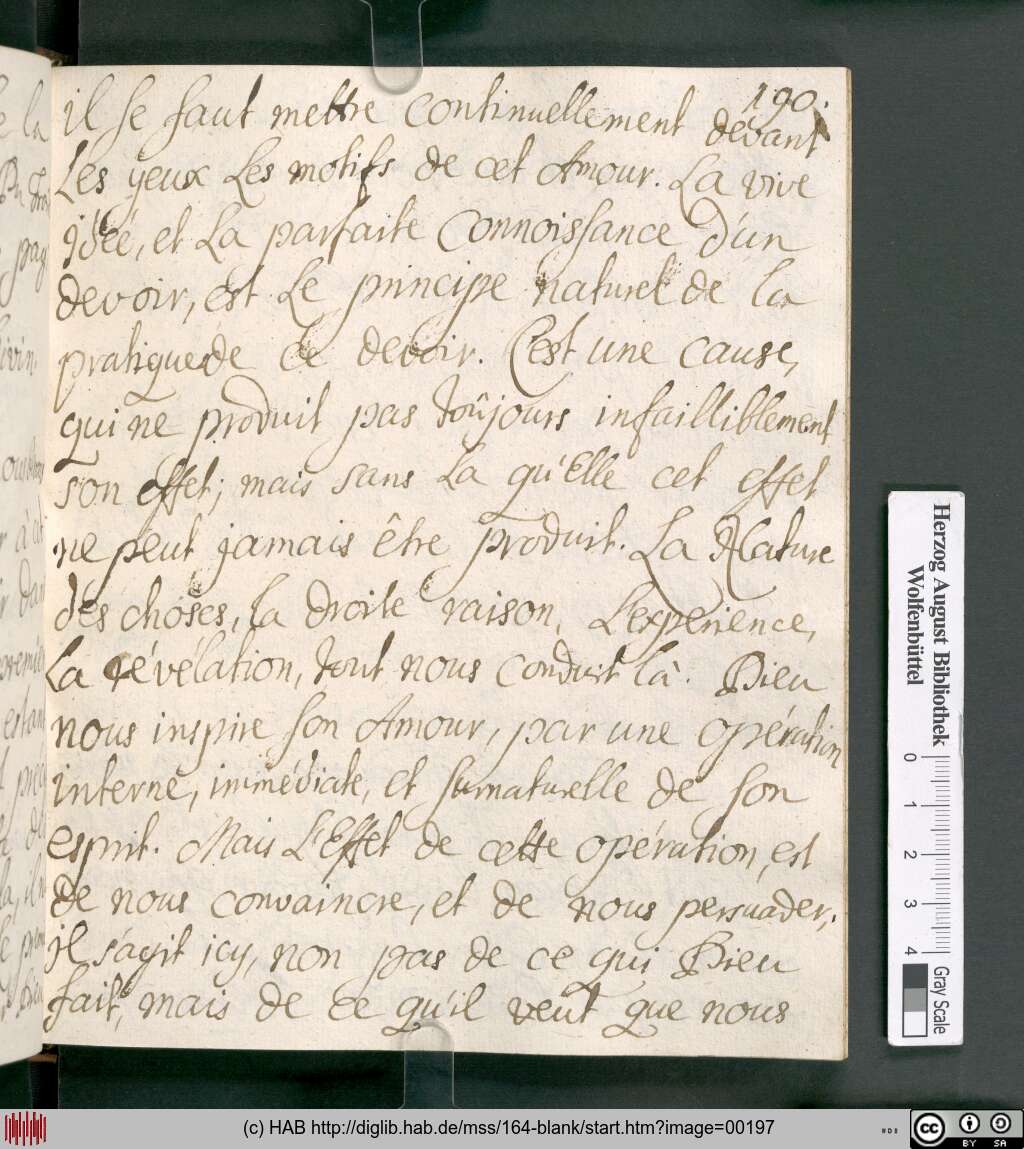 190.
il se faut mettre continuellement devant
Les yeux Les motifs de cet Amour. La vive
idée, et La parfaite Connoissance d'un
devoir, est Le principe naturel de la
pratique de ce devoir. C'est une cause,
qui ne produit pas toûjours infailliblement
son effet; mais sans La qu'Elle cet effet
ne peut jamais être produit. La Nature
des choses, la droite raison, L'experience,
La révélation, tout nous conduit là. Dieu
nous inspire son Amour, par une opération
interne, immédiate, et surnaturelle de son
esprit. Mais L'Effet de cette opération, est
de nous convaincre, et de nous persuader,
il s'agit icy, non pas de ce qui Dieu
fait, mais de ce qu'il veut que nous
Herzog August Bibliothek
Wolfenbüttel
0 1 2 3 4
Gray Scale
(c) HAB http://diglib.hab.de/mss/164-blank/start.htm?image=00197
cc BY SA